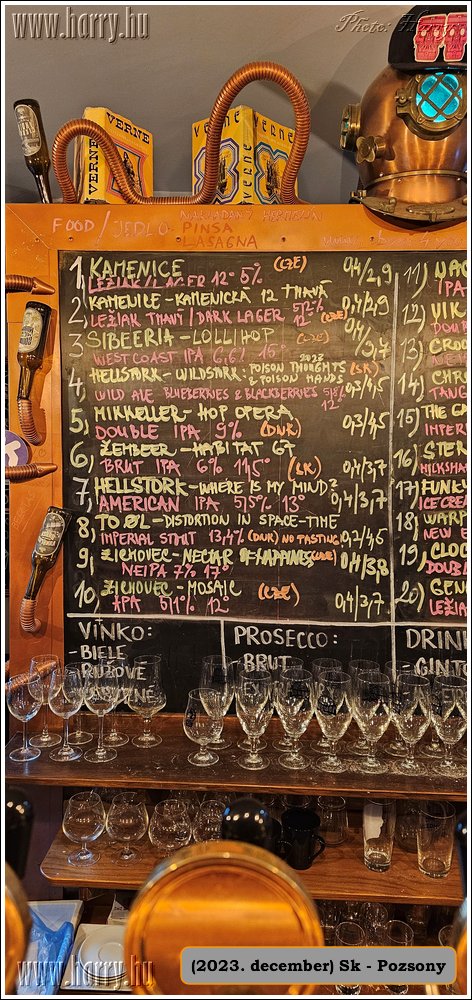 www.harry.hu
Photo: Harry
VERNE
VERNE
VERNE
FOOD / JEDLO
NAKLADANÝ HERMELÍN
PINSA
LASAGNA
1, KAMENICE (CZE) 0,4/2,9
LEŽIAK/LAGER 12° 5%
2, KAMENICE - KAMENICKÁ 12 TMAVÁ 0,4/2,9
LEŽIAK TMAVÝ/DARK LAGER 5,2% 12° (CZE)
3, SIBEERIA - LOLLIHOP (CZE) 0,4/3,7
WEST COAST IPA 6,6% 15°
4, HELLSTORK - WILDSTORK: POISON THOUGHTS & POISON HANDS (SK) 0,3/4,5
WILD ALE BLUEBERRIES & BLACKBERRIES 5,8% 12°
5, MIKKELLER - HOP OPERA 0,3/4,5
DOUBLE IPA 9% (DNK)
6, ŽEMBEER - HABITAT 67
BRUT IPA 6% 11,5° (SK) 0,4/3,7
7, HELLSTORK - WHERE IS MY MIND?
AMERICAN IPA 5,5% 13° 0,4/3,7
8, TO ØL - DISTORTION IN SPACE-TIME
IMPERIAL STOUT 13,4% (DNK) NO TASTING 0,2/4,5
9, ZICHOVEC - NECTAR OF HAPPINESS (CZE) 0,4/3,8
NEIPA 7% 17°
10, ZICHOVEC - MOSAIC (CZE) 0,4/3,7
APA 5,1% 12°
11)
IPA
12, VIK
DOU
13, CRO
NE
14, CHR
TANG
15) THE G
IMPER
16, STER
MILKSHA
17, FUNKY
ICE CREA
18, WARP
NEW E
19, CLO
DOUBL
20) GEN
LEŽIA
VÍNKO:
- BIELE
- RUŽOVÉ
PROSECCO:
- BRUT
DRINK
- GINTO
www.harry.hu
www.harry.hu
(2023. december) Sk - Pozsony